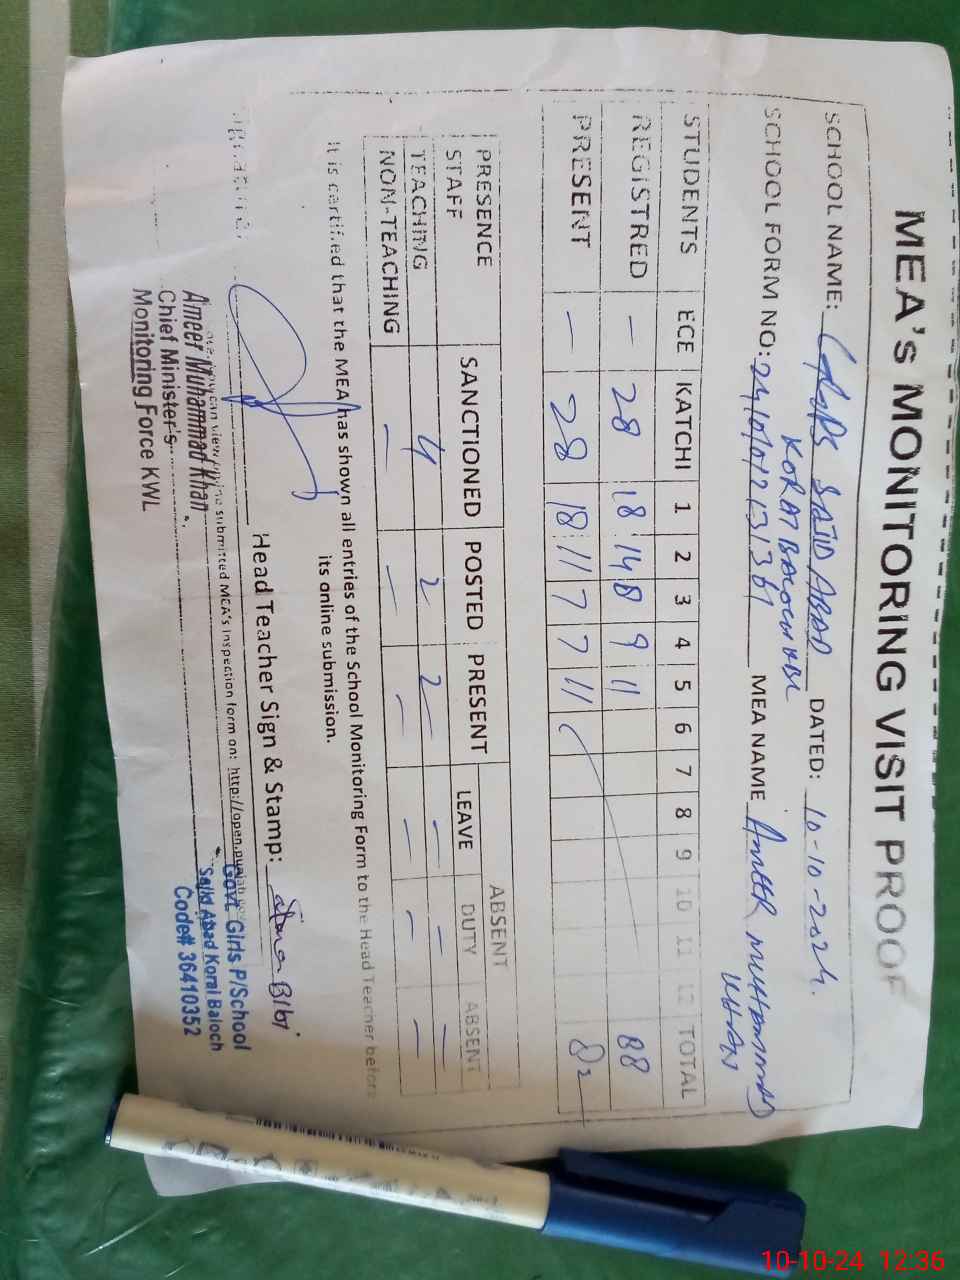 MEA's MONITORING VISIT PROOF
SCHOOL NAME: SAJID ABAD DATED: 10-10-2024.
KORAI BALOCH
SCHOOL FORM NO: MEA NAME AMEER MUHAMMAD
KHAN
STUDENTS ECE KATCHI 1 2 3 4 5 6 7 8 9 10 11 12 TOTAL
REGISTRED — 28 18 14 8 9 11 88
PRESENT — 28 18 11 7 7 11 82
PRESENCE SANCTIONED POSTED PRESENT ABSENT
STAFF LEAVE DUTY ABSENT
TEACHING 4 2 2 — — —
NON-TEACHING — — — — — —
It is certified that the MEA has shown all entries of the School Monitoring Form to the Head Teacher before
its online submission.
Head Teacher Sign & Stamp: Bibi
can view online submitted MEA's inspection form on: http://open.punjab
Ameer Muhammad Khan
Chief Minister's
Monitoring Force KWL
Govt Girls P/School
Sajid Abad Korai Baloch
Code# 36410352
10-10-24 12:36